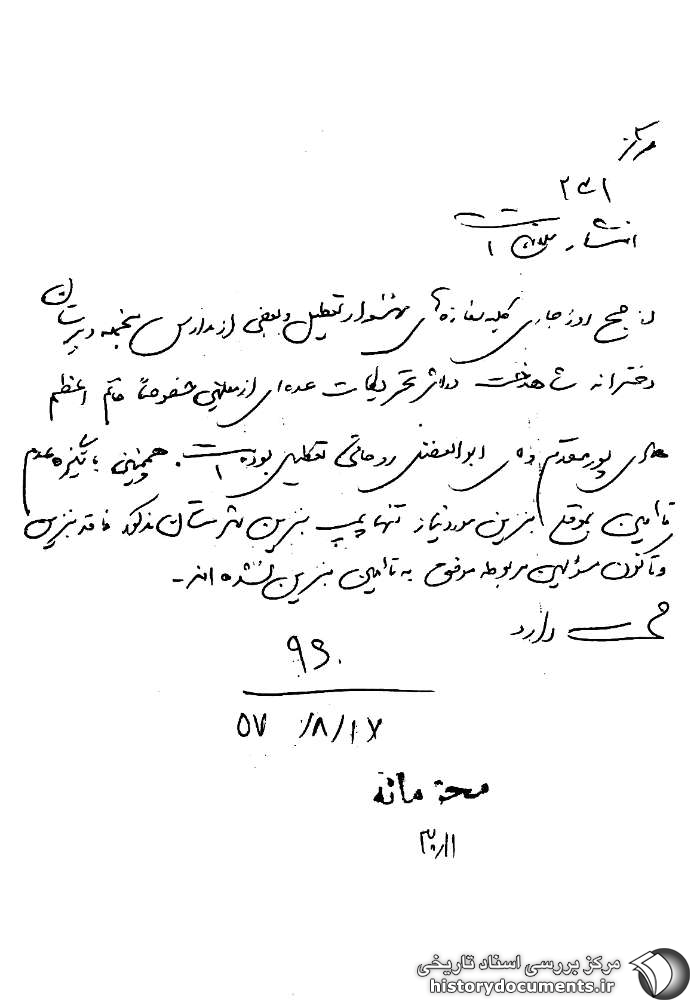 مرکز
۲۳۱
انتشار
از صبح روز جاری کلیه مغازه‌های تعطیل و بعضی از مدارس منجمله دبیرستان
دخترانه شاهدخت در اثر تحریکات عده‌ای از معلمین خصوصاً خانم اعظم
پورمقدم و ابوالفضل روحانی تعطیل بوده است. همچنین با نتیجه عدم
تأمین بموقع بنزین مورد نیاز تنها پمپ بنزین شهرستان مذکور فاقد بنزین
و تاکنون مسئولین مربوطه موفق به تأمین بنزین نشده‌اند-
دارد
۵۷ /۸/۱۷
محرمانه
مرکز بررسی اسناد تاریخی
historydocuments.ir